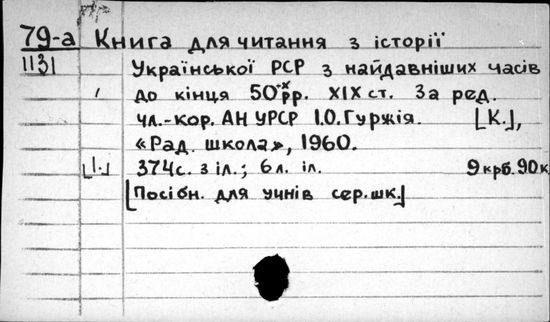 79-а Книга для читання з історії
1131 Української РСР з найдавніших часів
до кінця 50-х рр. XIX ст. За ред.
чл.-кор. АН УРСР І.О. Гуржія. [К.],
«Рад. школа», 1960.
[1.] 374с. з іл.; 6л. іл. 9 крб. 90 к
[Посібн. для учнів сер. шк.]